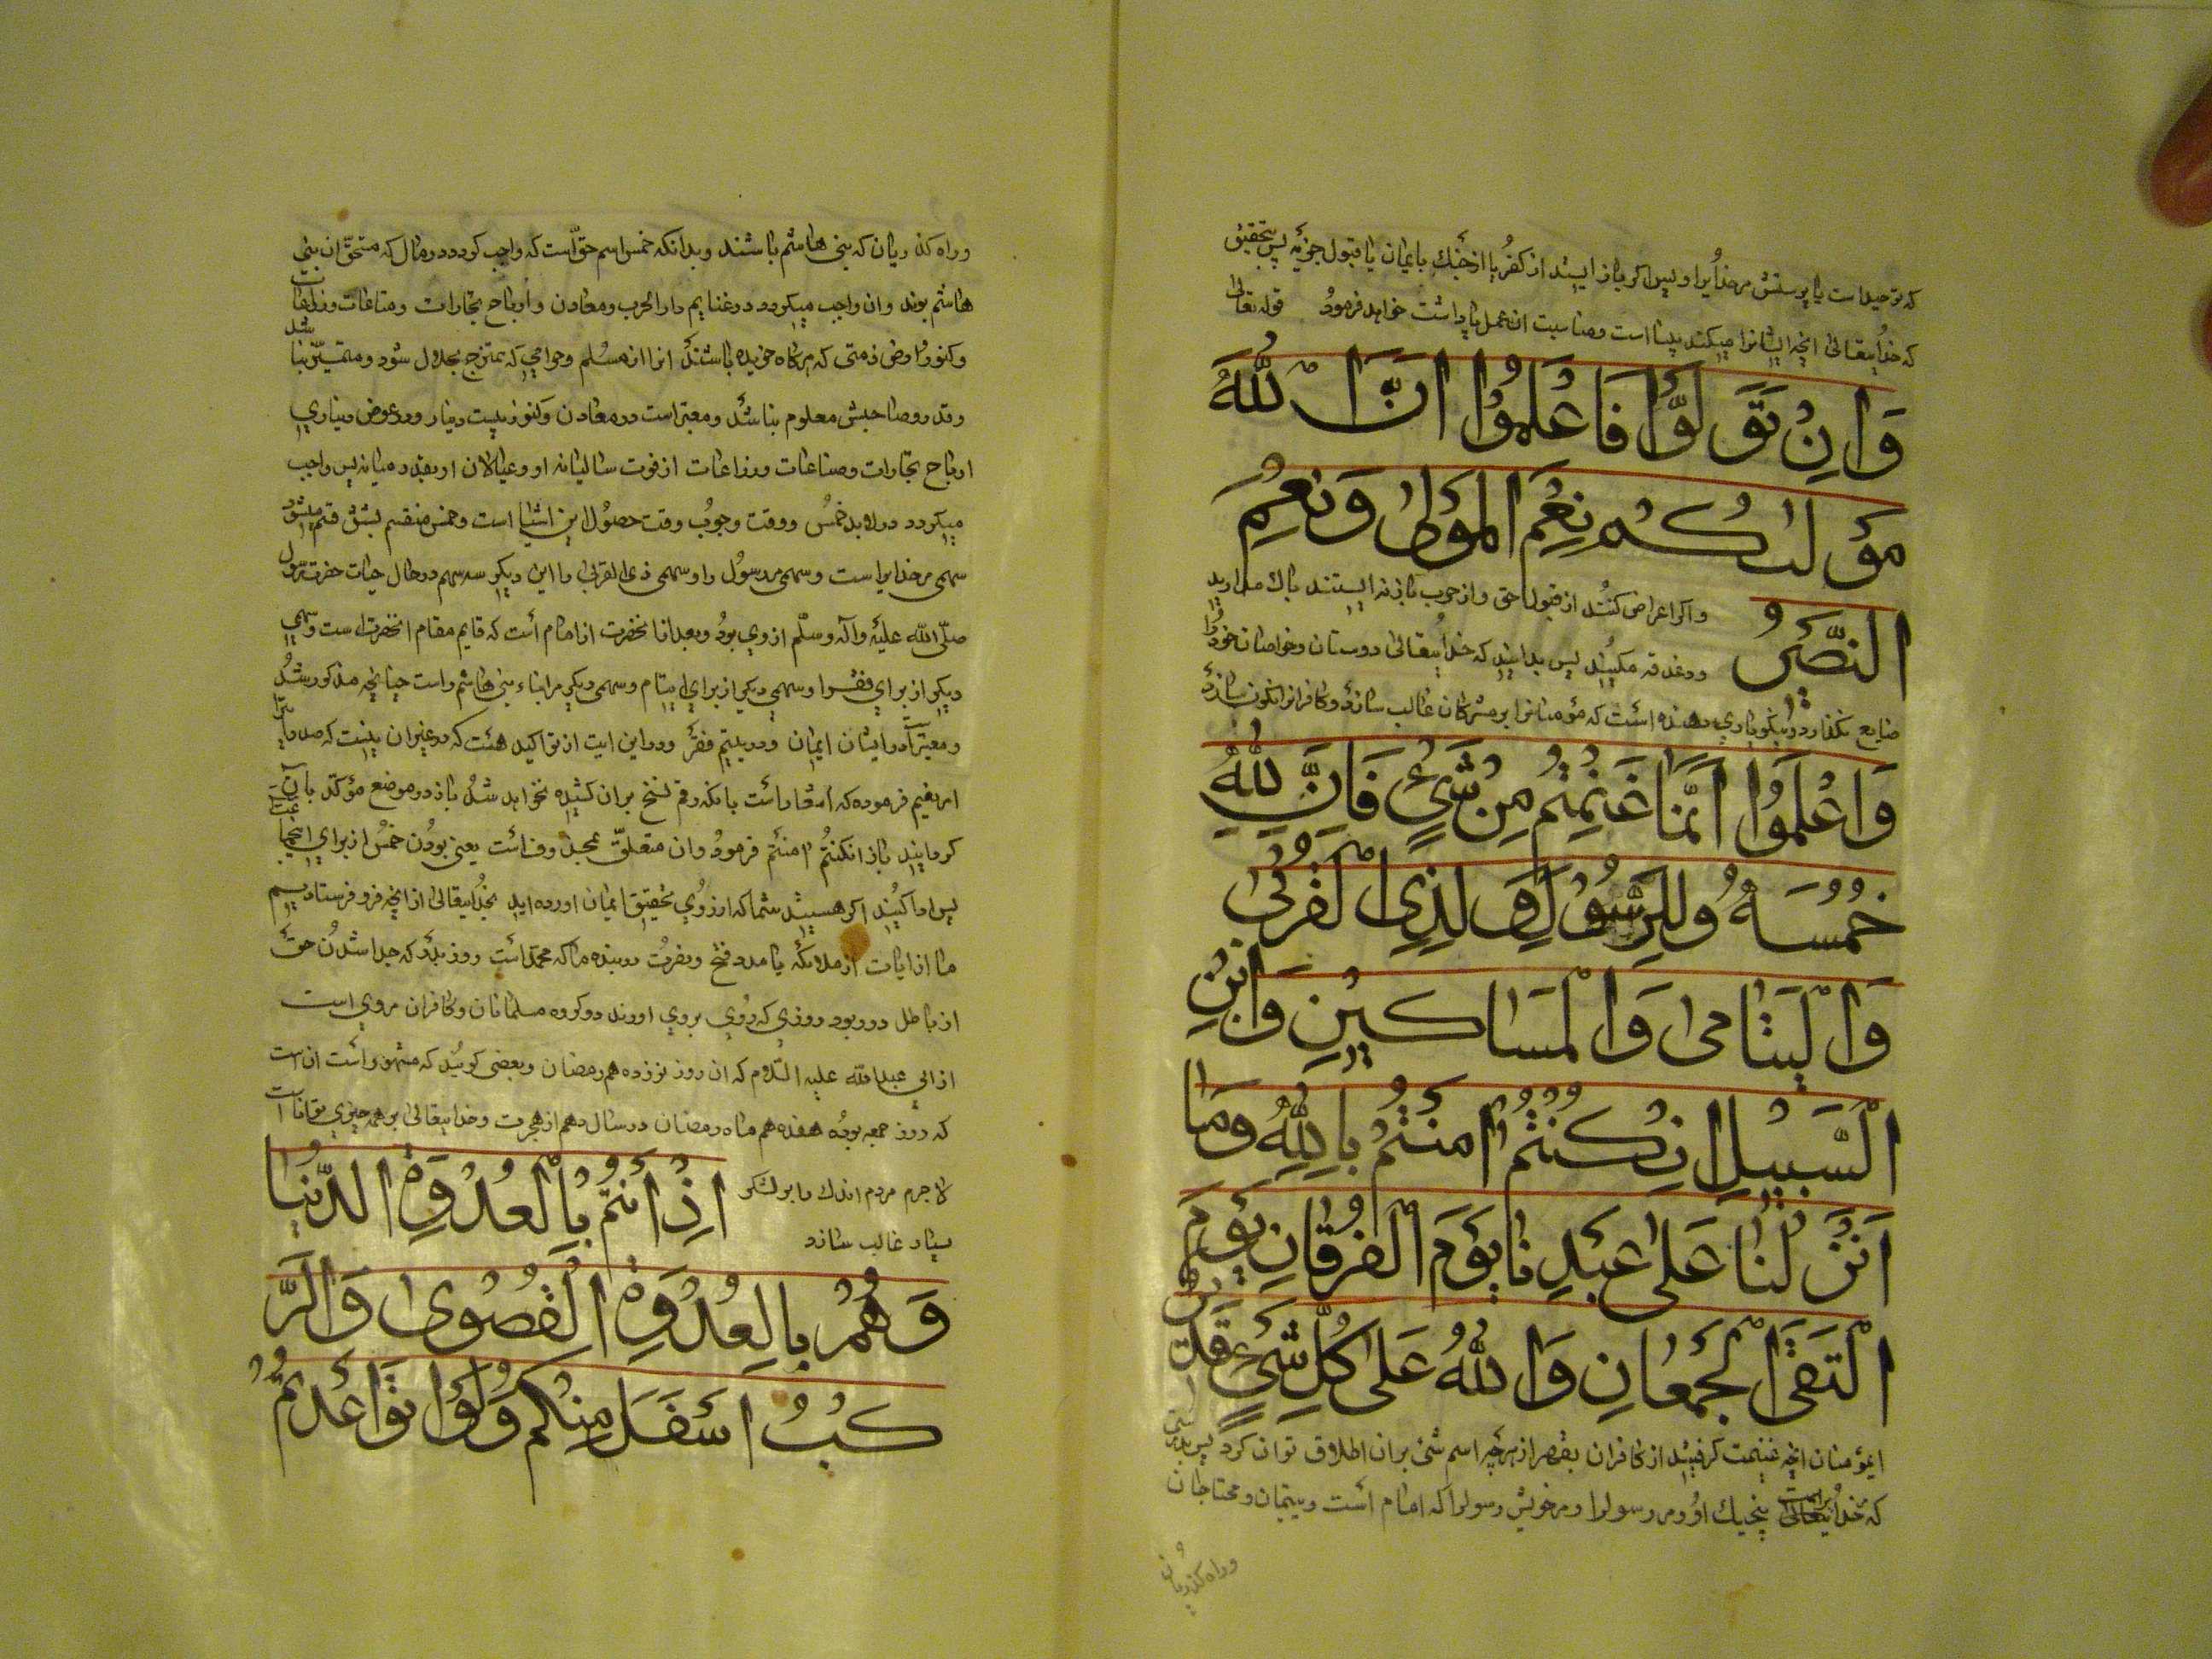 که توحید است یا پرستش مر خدایرا و بس اکر باز ایستد از کفر یا از جنك بایمان یا قبول جزیه پس بتحقیق
که خدایتعالی انچه ایشانرا میکنند بینا است ومناسبت ان عمل پاداشت خواهد فرمود قوله تعالی
وَاِنْ تَوَلَّوْا فَاعْلَمُوْا اَنَّ اللهَ
مَوْلٰىكُمْ نِعْمَ الْمَوْلٰى وَنِعْمَ
النَّصِيْرُ واکر اعراض کنند از قبول حق واز حرب باز نه ایستند باك مدارید
ودغدقه مکنید پس بدانید که خدایتعالی دوستان وخواصان خود را
ضایع نکذارد ونیکو یاری دهنده است که مؤمنانرا بر مشرکان غالب سازد وکافرانرا نکون سازد
وَاعْلَمُوْا اَنَّمَا غَنِمْتُمْ مِنْ شَيْءٍ فَاَنَّ لِلّٰهِ
خُمُسَهُ وَلِلرَّسُوْلِ وَلِذِي الْقُرْبٰى
وَالْيَتَامٰى وَالْمَسَاكِيْنِ وَابْنِ
السَّبِيْلِ اِنْ كُنْتُمْ اٰمَنْتُمْ بِاللّٰهِ وَمَا
اَنْزَلْنَا عَلٰى عَبْدِنَا يَوْمَ الْفُرْقَانِ يَوْمَ
الْتَقَى الْجَمْعَانِ وَاللهُ عَلٰى كُلِّ شَيْءٍ قَدِيْرٌ
ایمؤمنان انچه غنیمت کرفتید از کافران بقهر از هرچه اسم شئ بران اطلاق توان کرد پس بدرستی
که مر خدایتعالی راست پنجیك او ومر رسول را ومر خویش رسول را که امام است ویتیمان ومحتاجان
وراه کذریان
وراه کذریان که بنی هاشم باشند وبدانکه خمس اسم حقّ است که واجب کردد در مال که مستحقّ ان بنی
هاشم بوند وان واجب میکردد در غنایم دار الحرب ومعادن وارباح تجارات وصناعات وزراعات
وکنوز وارض ذمتی که خریده باشند انرا از مسلم وحرامی که ممتزج بحلال شود ومتمیّز نباشد
وقدر وصاحبش معلوم نباشد ومعتبر است در معادن وکنوز بیست دینار ودر غوص دیناری
ارباح تجارات وصناعات وزراعات از قوت سالیانه او وعیالان او بقدر میانه پس واجب
میکردد در زواید خمس ووقت وجوب وقت حصول این اشیا است وخمس منقسم بشش قسم میشود
سهمی مر خدایراست وسهمی مر رسول را وسهمی ذی القربی را این دیکر سه سهم در حال حیات حضرت رسول
صلّی الله علیه وآله وسلّم از وی بود وبعد از انحضرت از امام است که قایم مقام انحضرت است وسهمی
دیکر از برای فقرا وسهمی دیکر از برای ایتام وسهمی دیکر مر ابناء بنی هاشم راست چنانچه مذکور شد
ومعتبر است در ایشان ایمان ودر یتیم فقر ودر این ایت از تواکید هست که در غیر ان نیست که صدر را
امر بغنم فرموده که اشعار است بانکه رقم نسخ بران کشیده نخواهد شد باز در موضع مؤکّد بانّ
کردانید باز ان کنتم امنتم فرمود وان متعلق بمحذوف است یعنی بودن خمس از برای
پس ادا کنید اکر هستید شما که از روی تحقیق ایمان اورده اید بخدایتعالی از انچه فرو فرستادیم
ما از ایات از ملائکه یا مدد فتح ونصرت بر بنده ما که محمّد است روز بدر که جدا شدن حقّ
از باطل در و بود روزی که روی بروی اوردند دو کروه مسلمانان وکافران مروی است
از ابی عبد الله علیه السّلام که ان روز نوزدهم رمضان وبعضی کویند که مشهور است ان است
که روز جمعه بوده هفدهم ماه رمضان در سال دهم از هجرت وخدایتعالی بر همه چیزی تواناست
لاجرم مردم اندك را بر لشکر اِذْ اَنْتُمْ بِالْعُدْوَةِ الدُّنْيَا
بسیار غالب سازد
وَهُمْ بِالْعُدْوَةِ الْقُصْوٰى وَالرَّ
كْبُ اَسْفَلَ مِنْكُمْ وَلَوْ تَوَاعَدْتُمْ